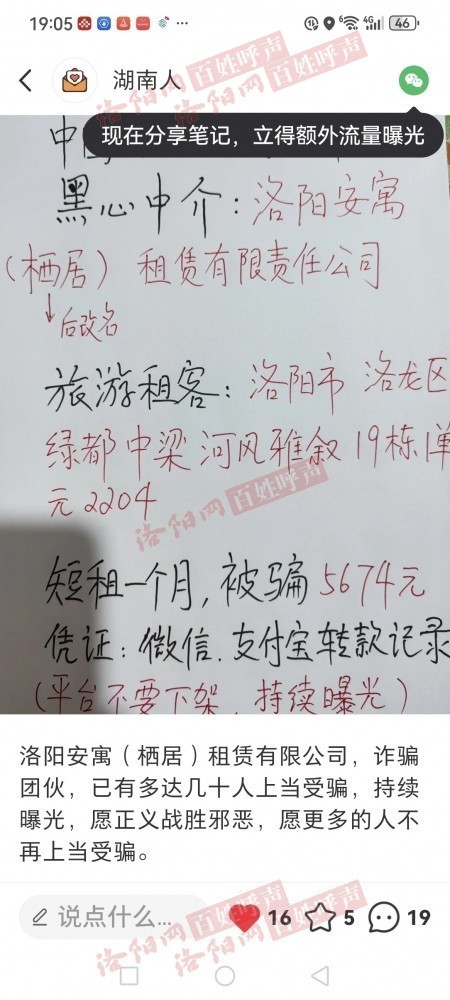 19:05
4G
46
湖南人
现在分享笔记，立得额外流量曝光
黑心中介：洛阳安寓
（栖居）租赁有限责任公司
后改名
旅游租客：洛阳市 洛龙区
绿都中梁河风雅叙19栋1单
元2204
短租一个月，被骗5674元
凭证：微信.支付宝转款记录
（平台不要下架，持续曝光）
洛阳安寓（栖居）租赁有限公司，诈骗
团伙，已有多达几十人上当受骗，持续
曝光，愿正义战胜邪恶，愿更多的人不
再上当受骗。
说点什么...
16
5
19
洛阳网 百姓呼声
洛阳网 百姓呼声
洛阳网 百姓呼声
洛阳网 百姓呼声